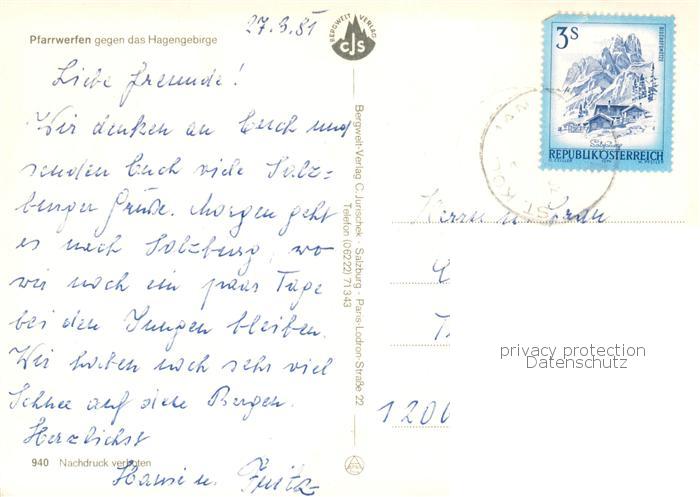 Pfarrwerfen gegen das Hagengebirge
27.3.81
BERGWELT VERLAG
CJS
Liebe Freunde!
Wir denken an Euch und
senden Euch viele Salz=
burger Grüße. Morgen geht
es nach Salzburg, wo
wir noch ein paar Tage
bei den Jungen bleiben.
Wir haben noch sehr viel
Schnee auf den Bergen.
Herzlichst
Hansi u. Fritz
940 Nachdruck verboten
Bergwelt-Verlag C. Jurischek · Salzburg · Paris-Lodron-Straße 22
Telefon (06222) 71343
3S
BISCHOFSMÜTZE
Salzburg
REPUBLIK ÖSTERREICH
Herrn u. Frau
1200
privacy protection
Datenschutz